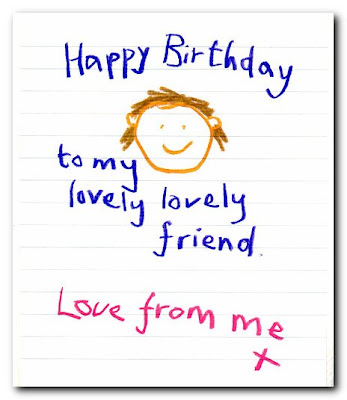 Happy Birthday
to my
lovely lovely
friend.
Love from me
x